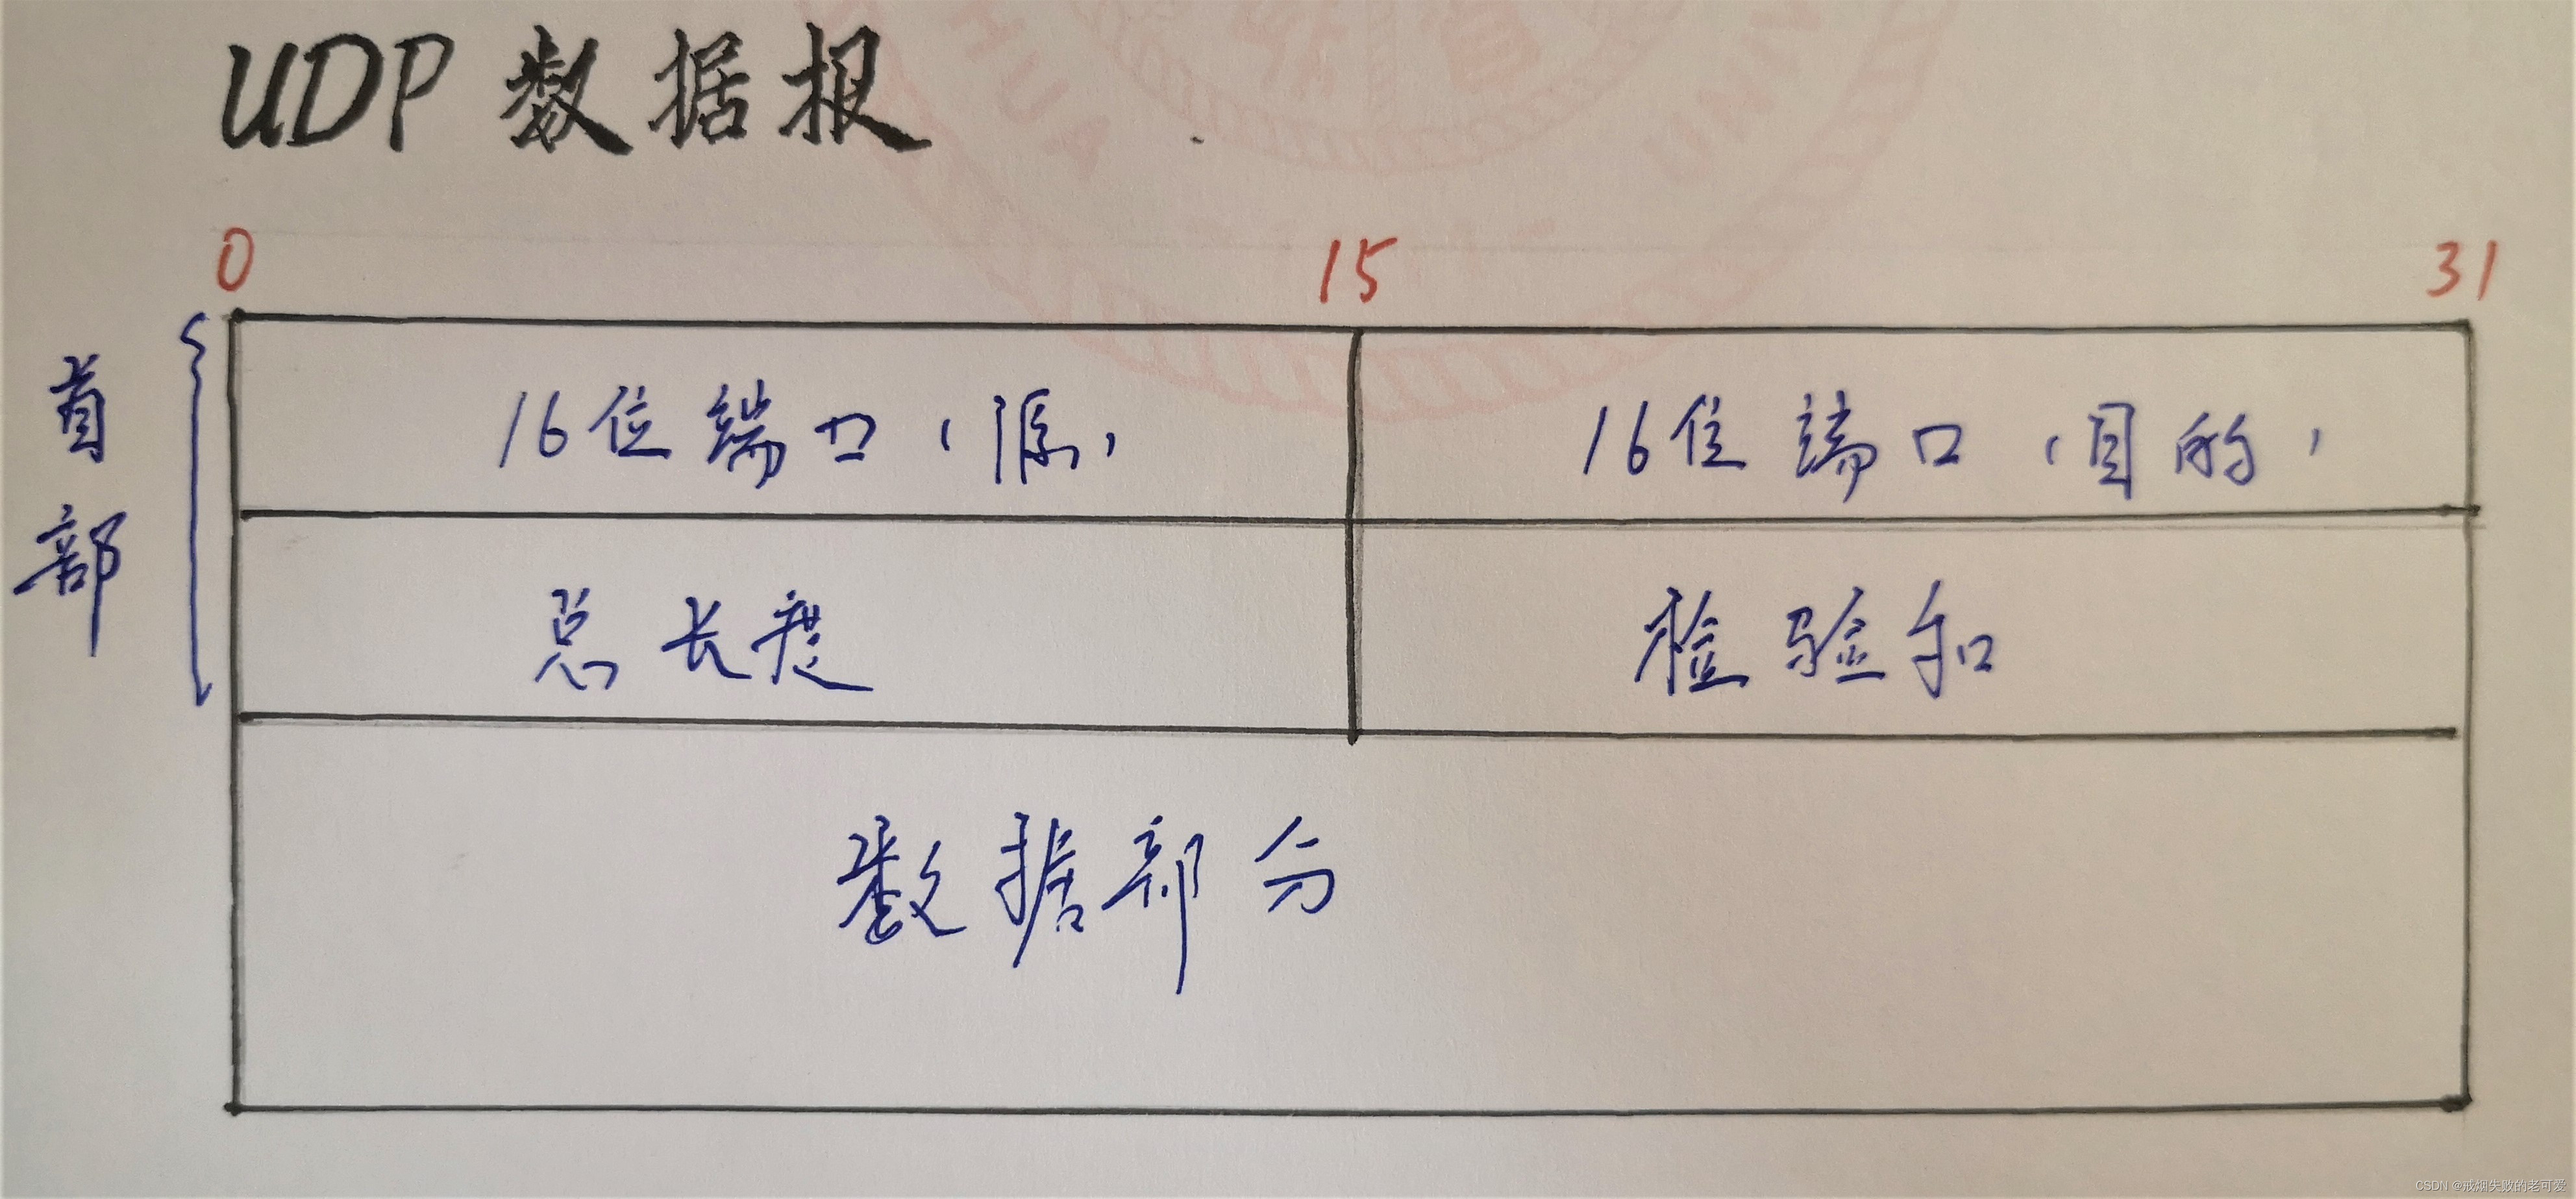 UDP 数据报
0 15 31
首部
16位端口(源) 16位端口(目的)
总长度 检验和
数据部分
CSDN @戒烟失败的老可爱